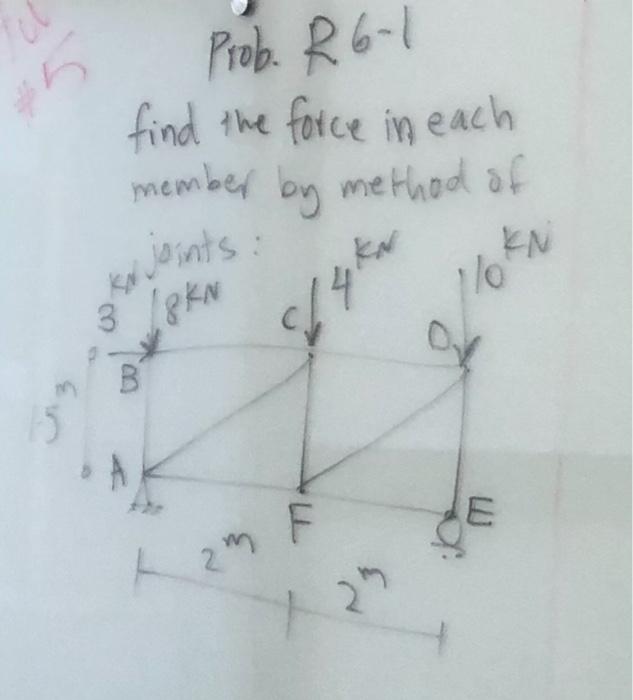 #5
Prob. R 6-1
find the force in each
member by method of
joints:
3 KN
8 KN
4 KN
10 KN
B
C
D
.5 m
A
F
E
2 m
2 m